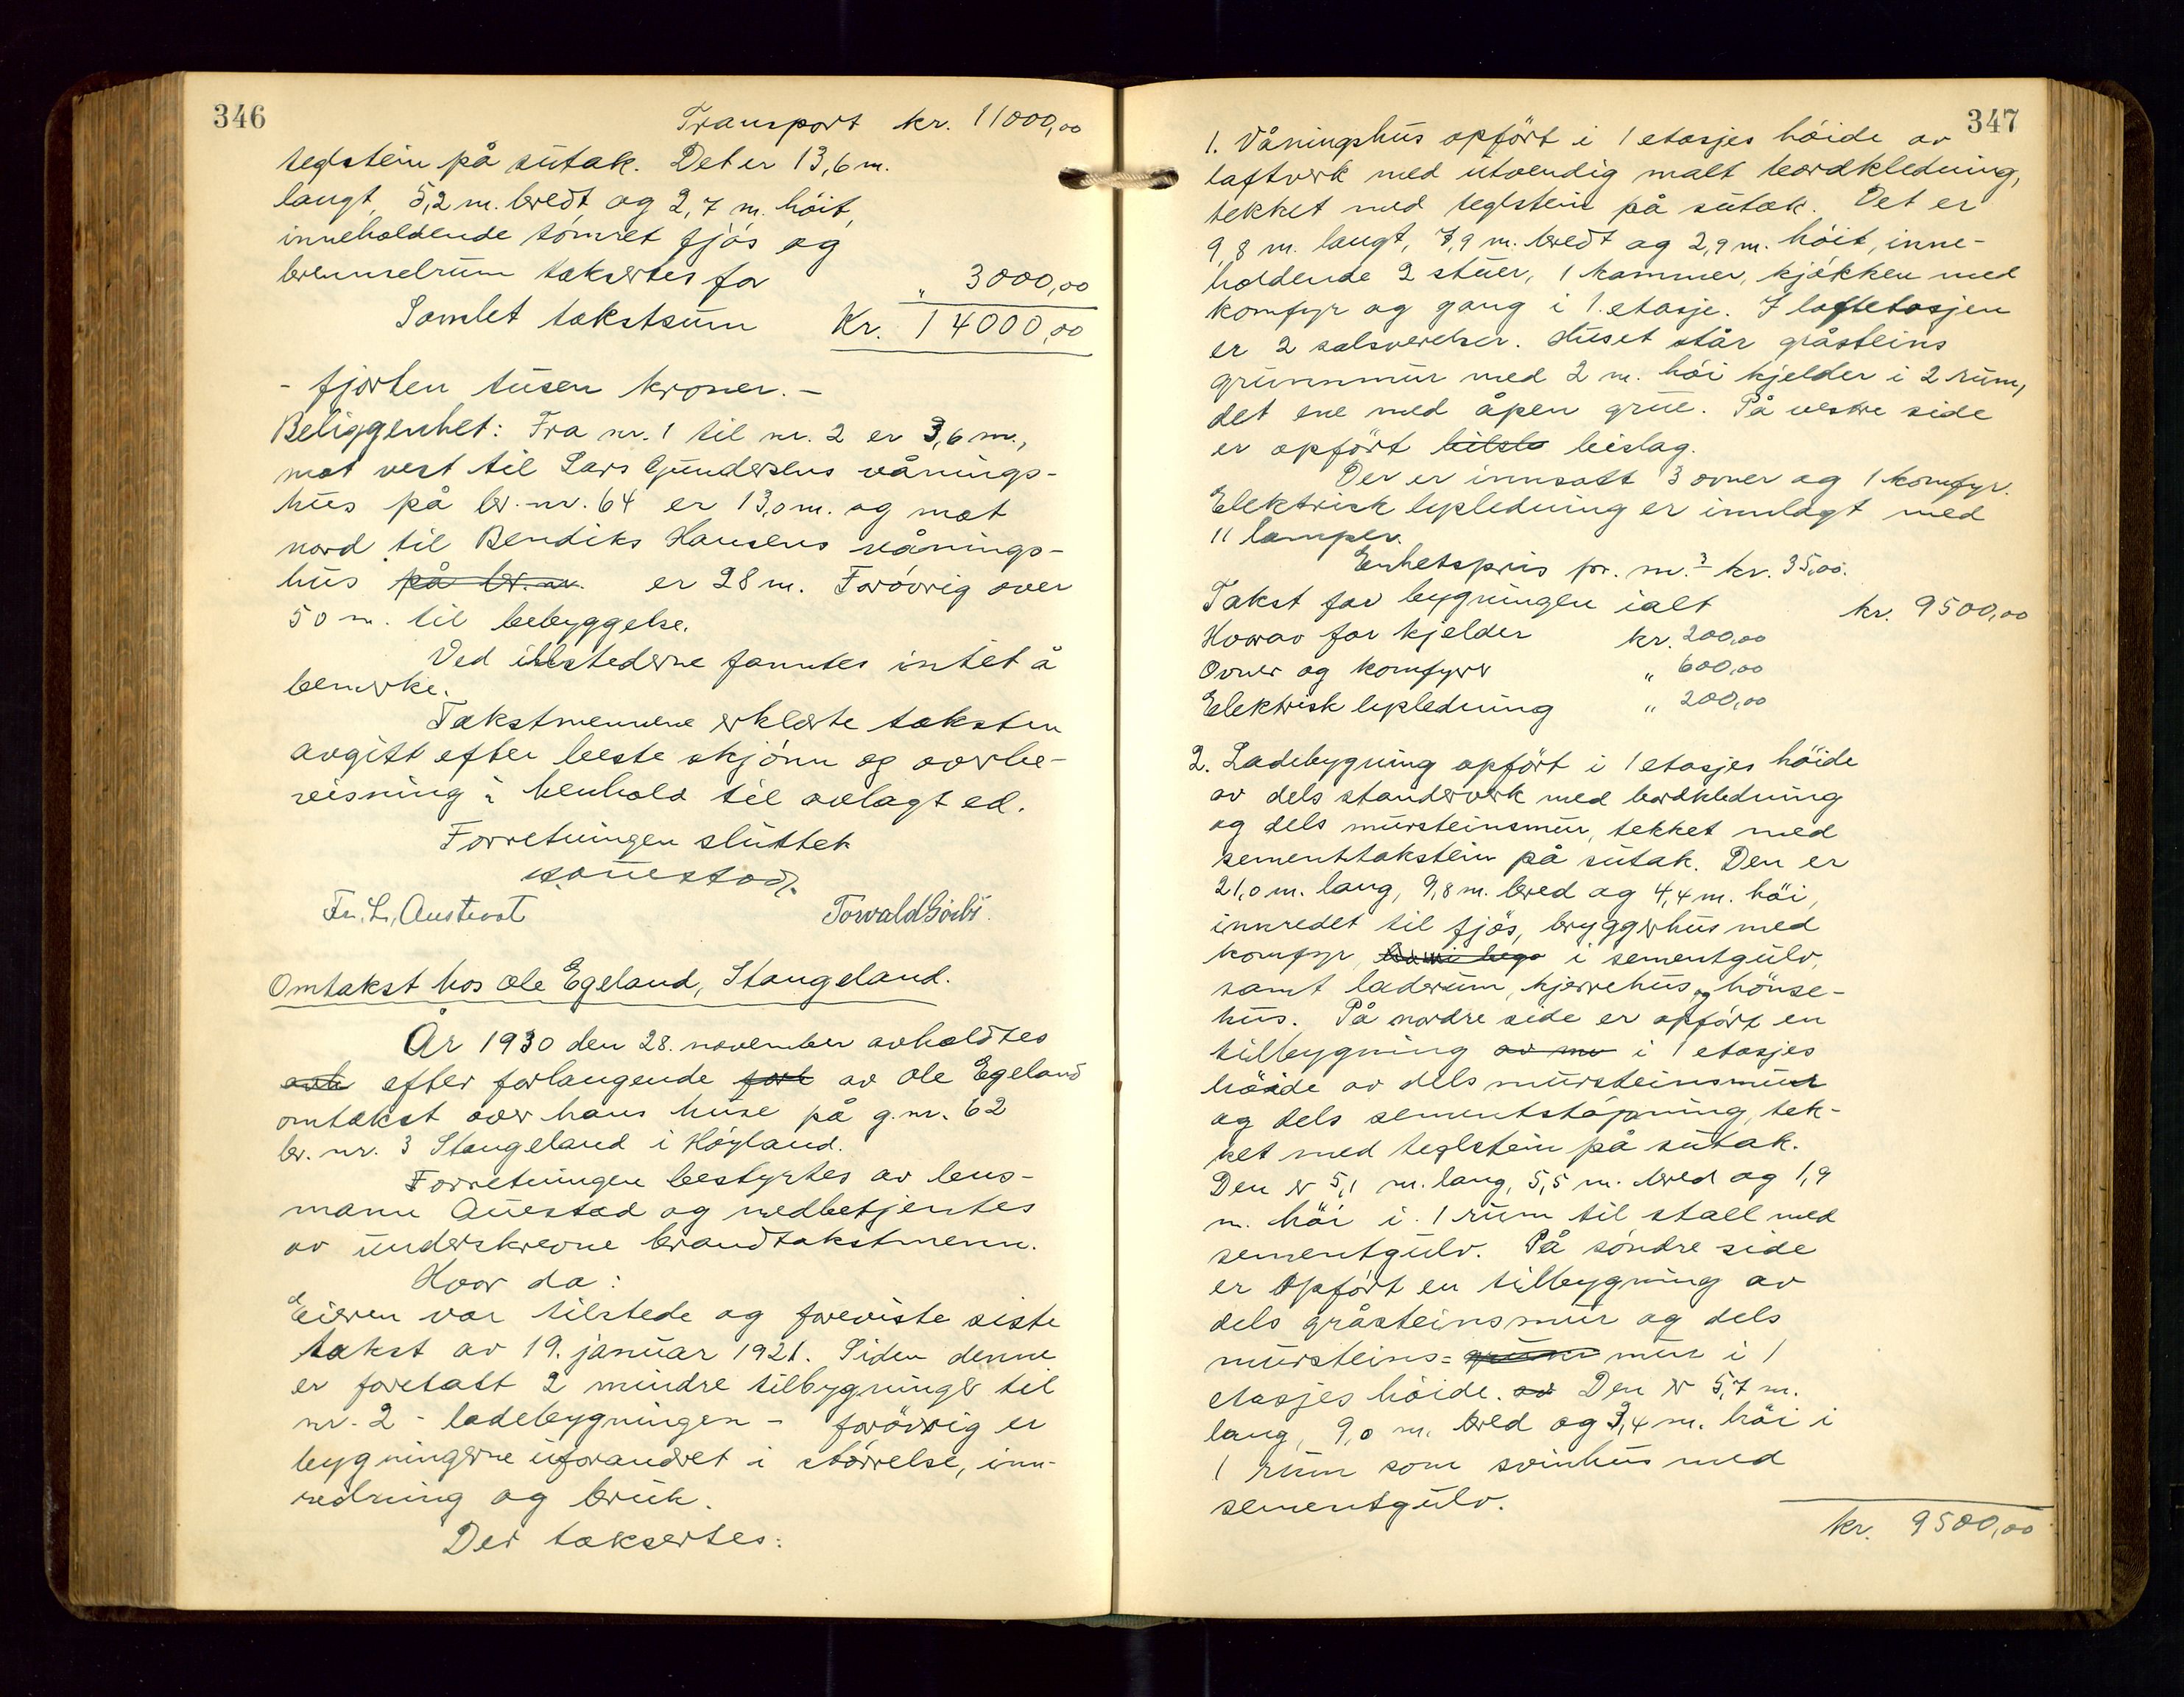 346
Transport kr. 11000,00
teglstein på sutak. Det er 13,6 m.
langt, 5,2 m. bredt og 2,7 m. höit,
inneholdende tömret fjös og
brenselrum taksertes for " 3000,00
Samlet takstsum Kr. 14000,00
- fjorten tusen kroner. -
Beliggenhet: Fra nr. 1 til nr. 2 er 3,6 m.,
mot vest til Lars Gundersens vånings-
hus på br. nr. 64 er 13,0 m. og mot
nord til Bendiks Hansens vånings-
hus på br. nr. er 28 m. Forövrig over
50 m. til bebyggelse.
Ved illstederne fanntes intet å
bemerke.
Takstmennene erklærte taksten
avgitt efter beste skjönn og overbe-
visning i henhold til avlagt ed.
Forretningen sluttet
Auestad.
Fr. L. Austvoll Torvald Gorbi.
Omtakst hos Ole Egeland, Stangeland.
År 1930 den 28. november avholdtes
avh efter forlangende forl av Ole Egeland
omtakst over hans huse på g.nr. 62
br. nr. 3 Stangeland i Höyland.
Forretningen bestyrtes av lens-
mann Auestad og medbetjentes
av underskrevne branndtakstmenn.
Hvor da:
Eieren var tilstede og foreviste siste
takst av 19. januar 1921. Siden denne
er foretatt 2 mindre tilbygninger til
nr. 2 - ladebygningen - forövrig er
bygningerne uforandret i störrelse, inn-
redning og bruk.
Der taksertes:
347
1. Våningshus opfört i 1 etasjes höide av
laftverk med utvendig malt bordkledning,
tekket med teglstein på sutak. Det er
9,8 m. langt, 7,9 m. bredt og 2,9 m. höit, inne-
holdende 2 stuer, 1 kammer, kjökken med
komfyr og gang i 1. etasje. I loftetasjen
er 2 salsverelser. Huset står gråsteins
grunnmur med 2 m. höi kjelder i 2 rum,
det ene med åpen grue. På vestre side
er opfört bilslo bislag.
Der er innsatt 3 ovner og 1 komfyr.
Elektrisk lysledning er innlagt med
11 lamper.
Enhetspris pr. m.3 kr. 35,00.
Takst for bygningen ialt kr. 9500,00
Hvorav for kjelder kr. 200,00
Ovner og komfyrer " 600,00
Elektrisk lysledning " 200,00
2. Ladebygning opfört i 1 etasjes höide
av dels standerverk med bordkledning
og dels mursteinsmur, tekket med
sementtakstein på sutak. Den er
21,0 m. lang, 9,8 m. bred og 4,4 m. höi,
innredet til fjös, bryggerhus med
komfyr, i sementgulv,
samt laderum, kjerrehus og hönse-
hus. På nordre side er opfört en
tilbygning av mu i 1 etasjes
höide av dels mursteinsmur
og dels sementstöpning, tek-
ket med teglstein på sutak.
Den er 5,1 m. lang, 5,5 m. bred og 1,9
m. höi i 1 rum til stall med
sementgulv. På söndre side
er opfört en tilbygning av
dels gråsteinsmur og dels
mursteins= mur i 1
etasjes höide. av Den er 5,7 m.
lang, 9,0 m. bred og 3,4 m. höi i
1 rum som svinhus med
sementgulv.
kr. 9500,00